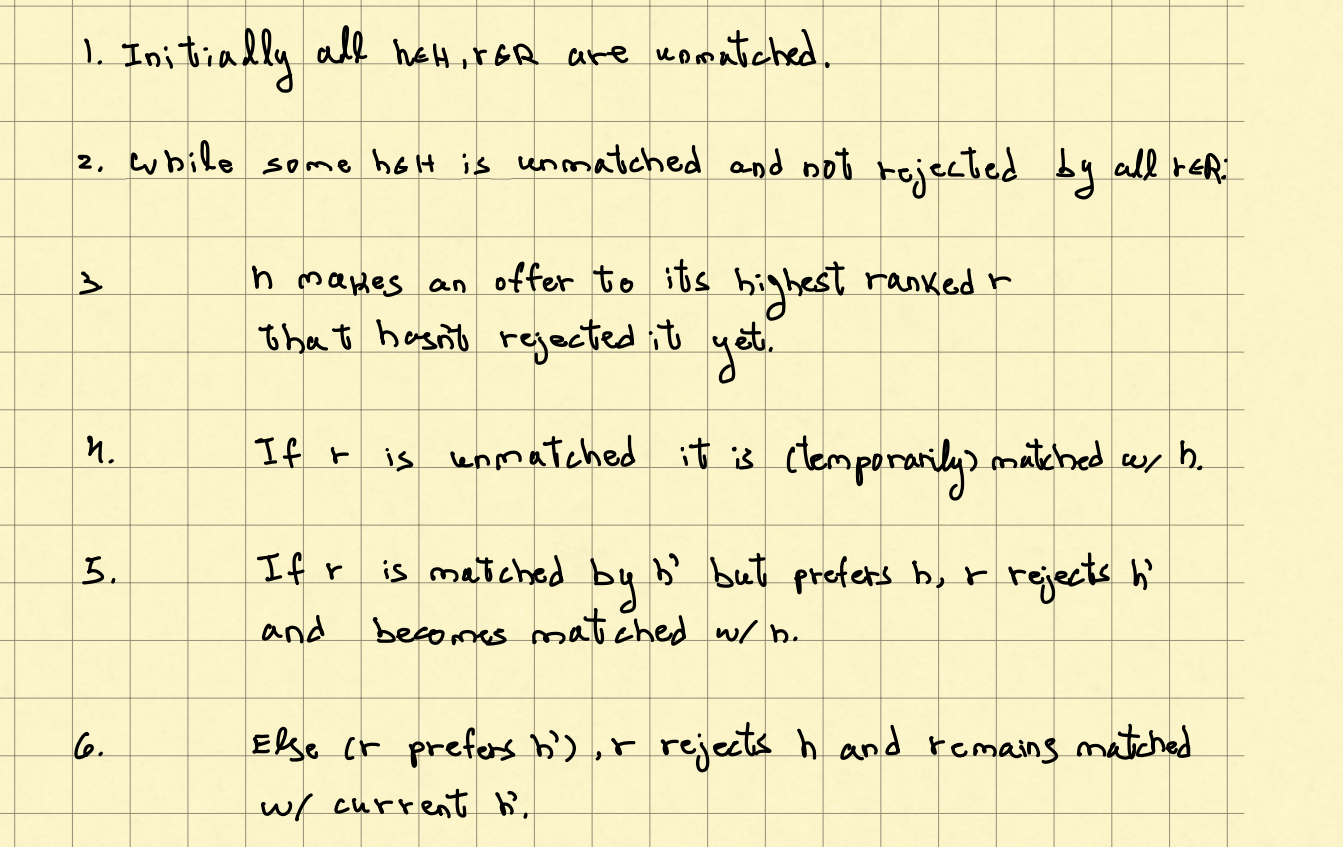 1. Initially all h∈H, r∈R are unmatched.
2. While some h∈H is unmatched and not rejected by all r∈R:
3 h makes an offer to its highest ranked r
that hasn't rejected it yet.
4. If r is unmatched it is (temporarily) matched w/ h.
5. If r is matched by h' but prefers h, r rejects h'
and becomes matched w/ h.
6. Else (r prefers h'), r rejects h and remains matched
w/ current h'.